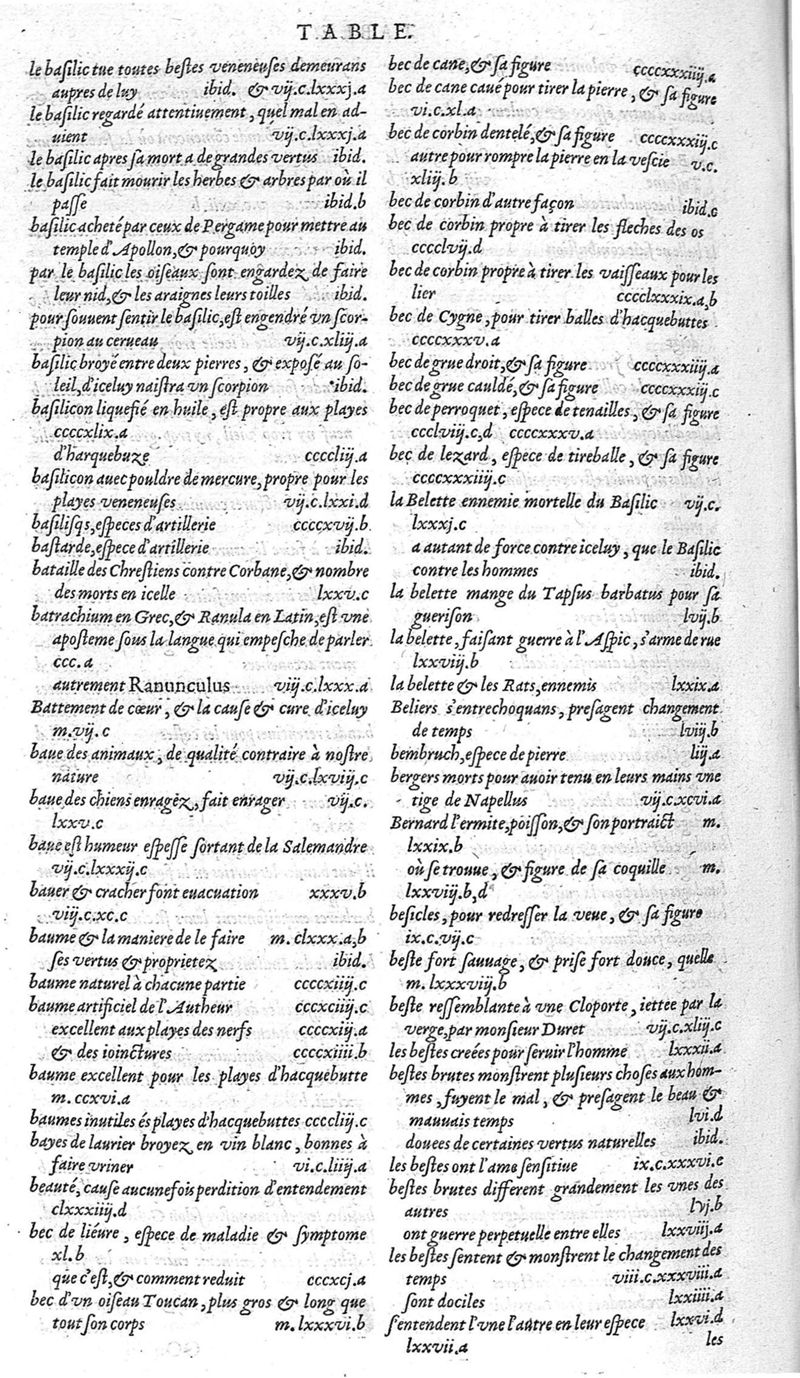 TABLE.
le basilic tue toutes bestes veneneuses demeurans
aupres de luy ibid. & vij.c.lxxxj.a
le basilic regardé attentiuement, quel mal en ad-
uient vij.c.lxxxj.a
le basilic apres sa mort a de grandes vertus ibid.
le basilic fait mourir les herbes & arbres par où il
passe ibid.b
basilic acheté par ceux de Pergame pour mettre au
temple d'Apollon, & pourquoy ibid.
par le basilic les oiseaux sont engardez de faire
leur nid, & les araignes leurs toilles ibid.
pour souuent sentir le basilic, est engendré vn scor-
pion au cerueau vij.c.xliij.a
basilic broyé entre deux pierres, & exposé au so-
leil, d'iceluy naistra vn scorpion ibid.
basilicon liquefié en huile, est propre aux playes
ccccxlix.a
d'harquebuze ccccliij.a
basilicon auec pouldre de mercure, propre pour les
playes veneneuses vij.c.lxxi.d
basilisqs, especes d'artillerie ccccxvij.b
bastarde, espece d'artillerie ibid.
bataille des Chrestiens contre Corbane, & nombre
des morts en icelle lxxv.c
batrachium en Grec, & Ranula en Latin, est vne
aposteme sous la langue qui empesche de parler
ccc.a
autrement Ranunculus viij.c.lxxx.a
Battement de cœur, & la cause & cure d'iceluy
m.vij.c
baue des animaux, de qualité contraire à nostre
nature vij.c.lxviij.c
baue des chiens enragez, fait enrager vij.c.
lxxv.c
baue est humeur espesse sortant de la Salemandre
vij.c.lxxxij.c
bauer & cracher font euacuation xxxv.b
viij.c.xc.c
baume & la maniere de le faire m. clxxx.a,b
ses vertus & proprietez ibid.
baume naturel à chacune partie ccccxiiij.c
baume artificiel de l'Autheur cccxciij.c
excellent aux playes des nerfs ccccxiij.a
& des ioinctures ccccxiiii.b
baume excellent pour les playes d'hacquebutte
m.ccxvi.a
baumes inutiles és playes d'hacquebuttes ccccliij.c
bayes de laurier broyez en vin blanc, bonnes à
faire vriner vi.c.liiij.a
beauté, cause aucunefois perdition d'entendement
clxxxiiij.d
bec de liéure, espece de maladie & symptome
xl.b
que c'est, & comment reduit cccxcj.a
bec d'vn oiseau Toucan, plus gros & long que
tout son corps m.lxxxvi.b
bec de cane, & sa figure ccccxxxiiij.a
bec de cane caué pour tirer la pierre, & sa figure
vi.c.xl.a
bec de corbin dentelé, & sa figure ccccxxxiij.c
autre pour rompre la pierre en la vescie v.c.
xliij.b
bec de corbin d'autre façon ibid.c
bec de corbin propre à tirer les fleches des os
cccclvij.d
bec de corbin propre à tirer les vaisseaux pour les
lier cccclxxxix.a,b
bec de Cygne, pour tirer balles d'hacquebuttes
ccccxxxv.a
bec de grue droit, & sa figure ccccxxxiiij.a
bec de grue cauldé, & sa figure ccccxxxiij.c
bec de perroquet, espece de tenailles, & sa figure
ccclviij.c,d ccccxxxv.a
bec de lezard, espece de tireballe, & sa figure
ccccxxxiiij.c
la Belette ennemie mortelle du Basilic vij.c.
lxxxj.c
a autant de force contre iceluy, que le Basilic
contre les hommes ibid.
la belette mange du Tapsus barbatus pour sa
guerison lvij.b
la belette, faisant guerre à l'Aspic, s'arme de rue
lxxviij.b
la belette & les Rats, ennemis lxxix.a
Beliers s'entrechoquans, presagent changement
de temps lviij.b
bembruch, espece de pierre liij.a
bergers morts pour auoir tenu en leurs mains vne
tige de Napellus vij.c.xcvi.a
Bernard l'ermite, poisson, & son portraict m.
lxxix.b
où se trouue, & figure de sa coquille m.
lxxviij.b,d
besicles, pour redresser la veue, & sa figure
ix.c.vij.c
beste fort sauuage, & prise fort douce, quelle
m.lxxxvij.b
beste ressemblante à vne Cloporte, iettee par la
verge, par monsieur Duret vij.c.xlij.c
les bestes creées pour seruir l'homme lxxxij.a
bestes brutes monstrent plusieurs choses aux hom-
mes, fuyent le mal, & presagent le beau &
mauuais temps lvi.d
douees de certaines vertus naturelles ibid.
les bestes ont l'ame sensitiue ix.c.xxxvi.e
bestes brutes different grandement les vnes des
autres lvj.b
ont guerre perpetuelle entre elles lxxviij.a
les bestes sentent & monstrent le changement des
temps viii.c.xxxviii.a
sont dociles lxxiiii.a
s'entendent l'vne l'autre en leur espece lxxvi.d
lxxvii.a
les